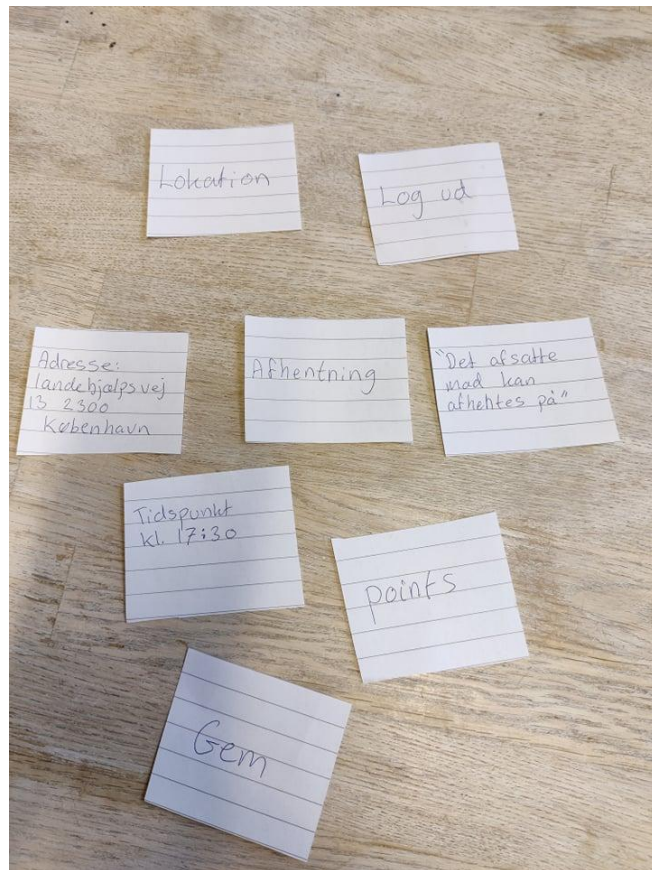 Lokation
Log ud
Adresse:
landehjælpsvej
13 2300
København
Afhentning
"Det afsatte
mad kan
afhentes på"
Tidspunkt
kl. 17:30
points
Gem